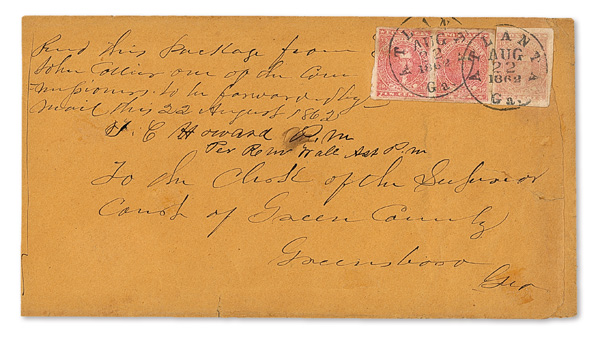 Recd this Package from
John Collier one of the Com
missioners to be forwarded by
mail this 22 August 1862
T. C Howard P. M
Per R M Wall Ast P. m
To the Clerk of the Superior
Court of Green County
Greensboro
Geo
ATLANTA
AUG
22
1862
Ga.
ATLANTA
AUG
22
1862
Ga.